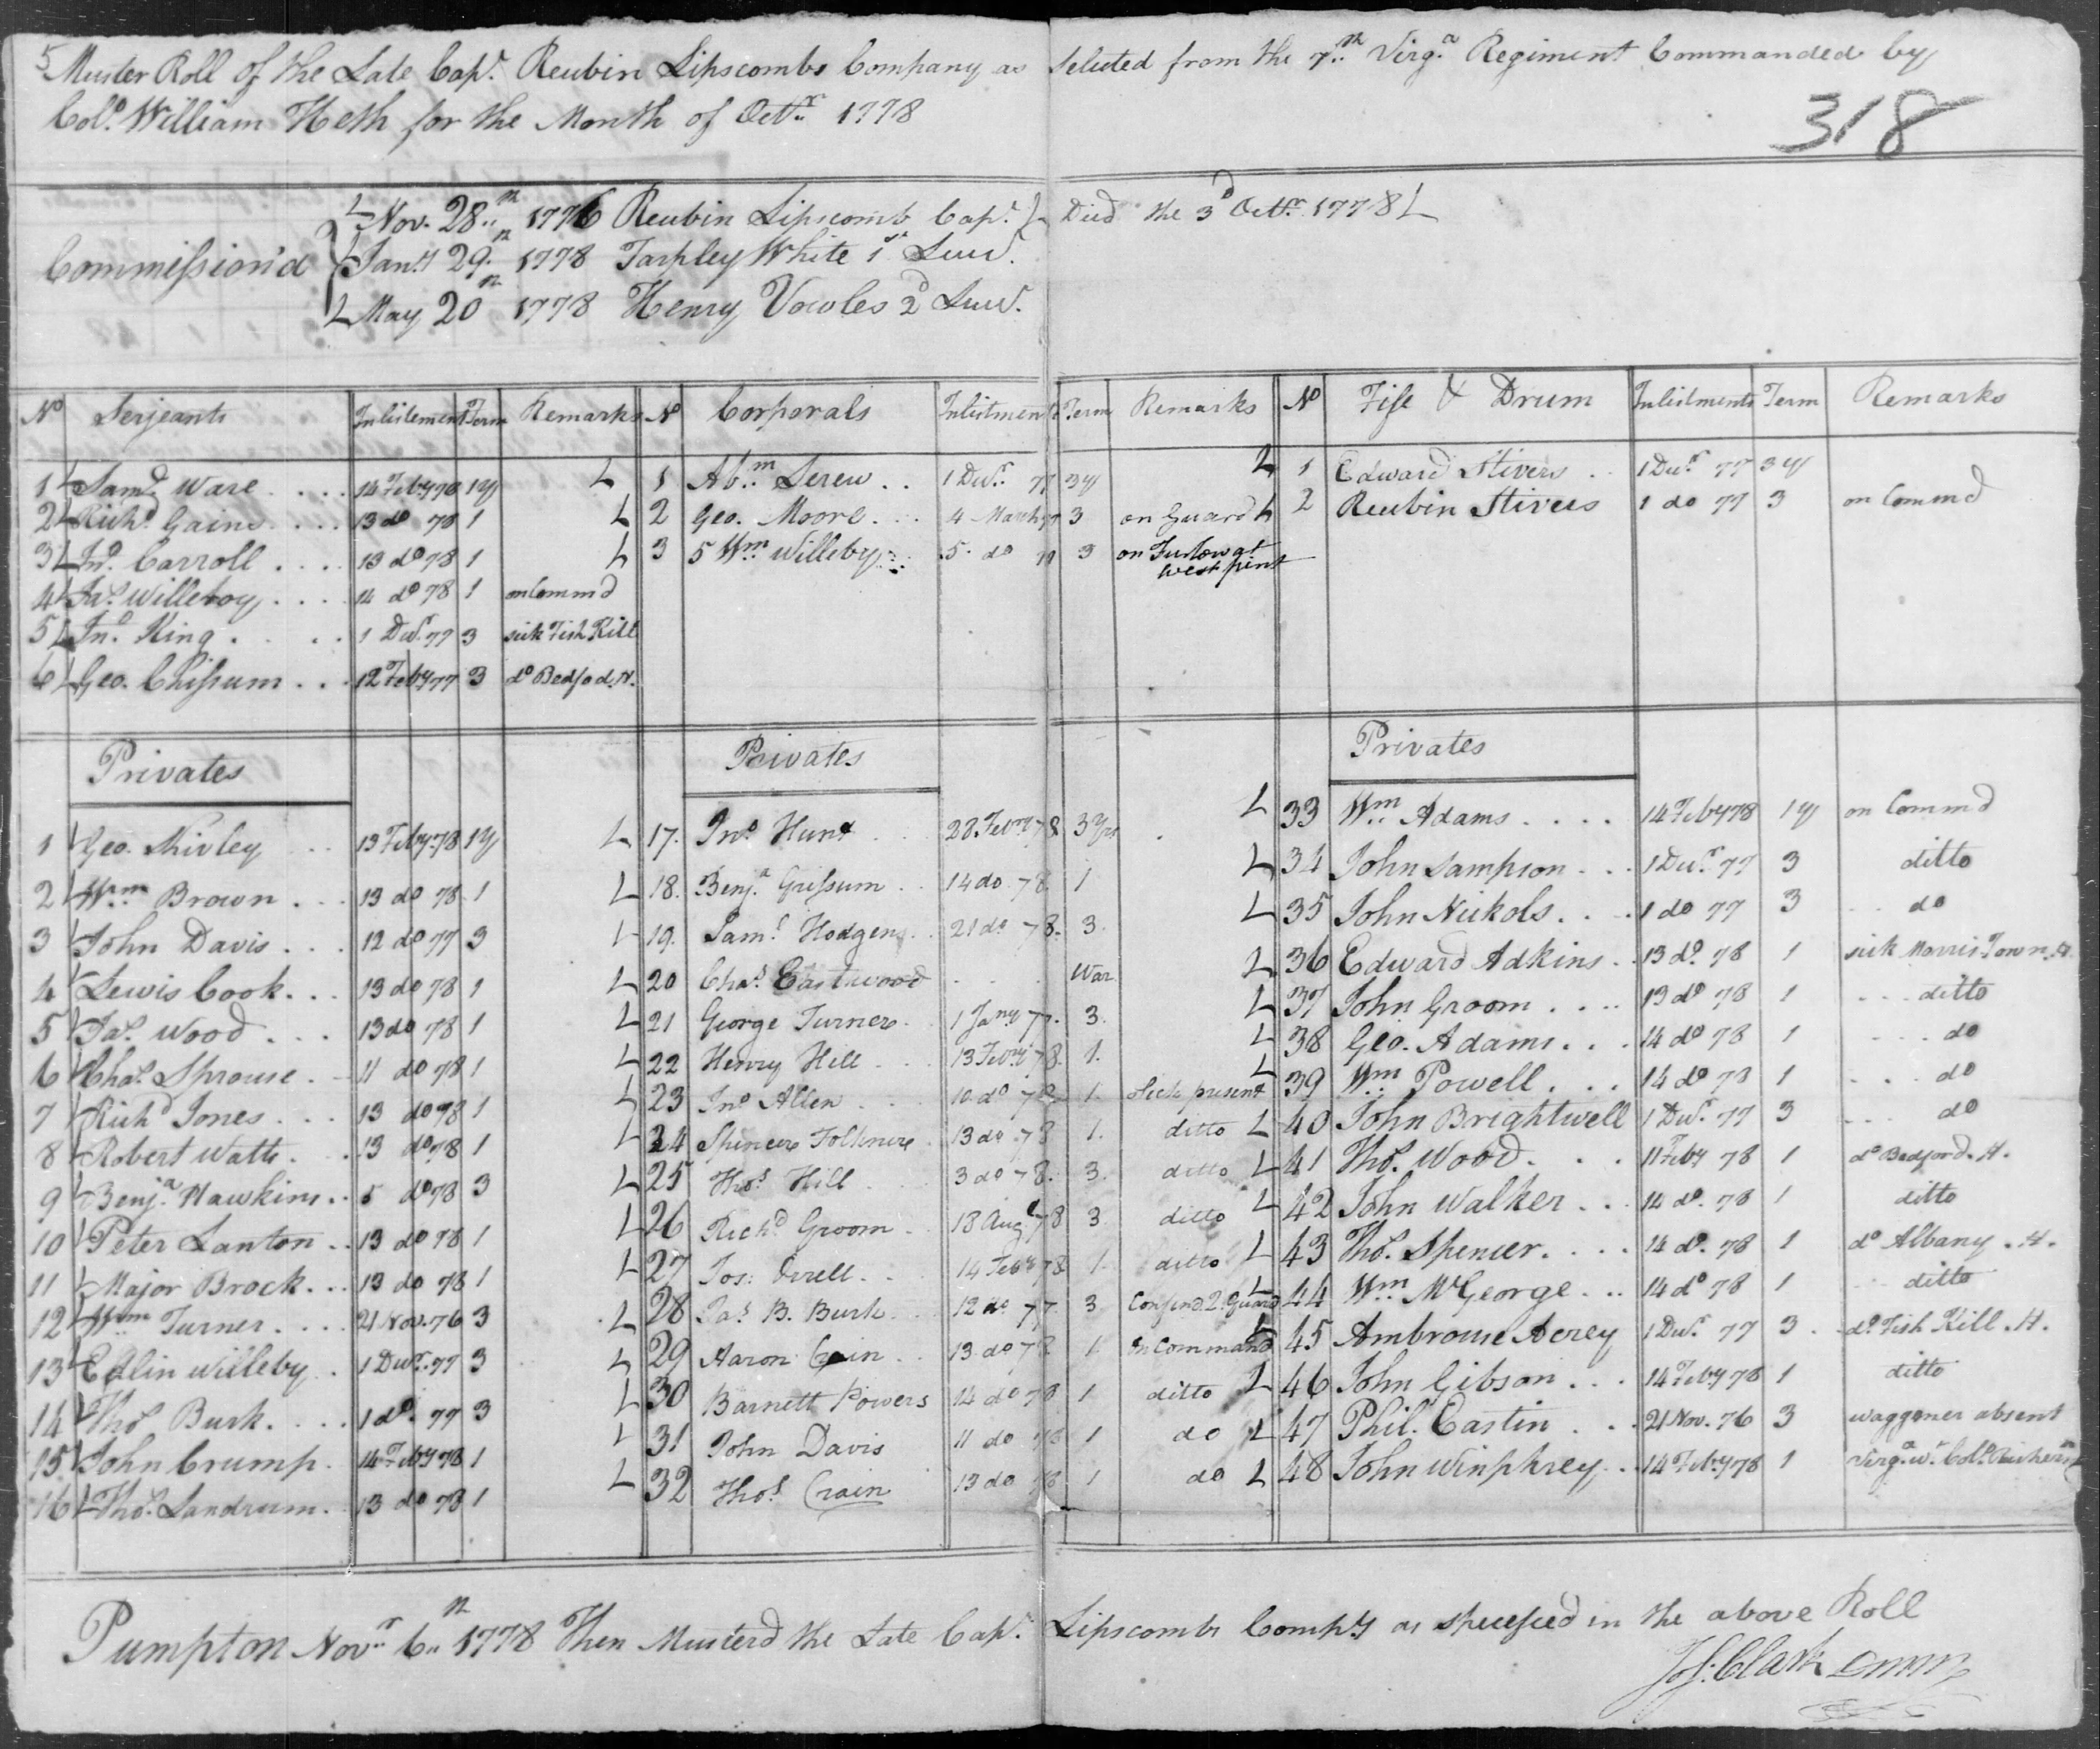 5 Muster Roll of the Late Capt. Reubin Lipscombs Company as Selected from the 7th Virga Regiment Commanded by
Colo. William Heth for the Month of Octr. 1778
318
Commission'd
Nov. 28th 1776 Reubin Lipscomb Capt. Died the 3d Octr. 1778
Jany 29th 1778 Tarpley White 1st Lieut.
May 20th 1778 Henry Vowles 2d Lieut.
No Serjeants Inlistement Term Remarks
1 Saml Ware 14 Feby 78 1y
2 Richd Gains 13 do 78 1
3 Jno Carroll 13 do 78 1
4 Jas Willeboy 14 do 78 1 on Commd
5 Jno King 1 Decr 77 3 sick Fish Kill
6 Geo. Chissum 12 Feby 77 3 do Bedfod. H.
No Corporals Inlistments Term Remarks
1 Abm Sereu 1 Decr 77 3y
2 Geo. Moore 4 March 77 3 on Guard
3 5 Wm Willeby 5 do 77 3 on Furlow at
west pint
No Fife & Drum Inlistments Term Remarks
1 Edward Stivers 1 Decr 77 3y
2 Reubin Stivers 1 do 77 3 on Commd
Privates
1 Geo. Shirley 13 Feby 78 1y
2 Wm Brown 13 do 78 1
3 John Davis 12 do 77 3
4 Lewis Cook 13 do 78 1
5 Jas Wood 13 do 78 1
6 Chas. Sprouse 11 do 78 1
7 Richd Jones 13 do 78 1
8 Robert Watts 13 do 78 1
9 Benja. Hawkins 5 do 78 3
10 Peter Lanton 13 do 78 1
11 Major Brock 13 do 78 1
12 Wm Turner 21 Nov. 76 3
13 Edlin Willeby 1 Decr. 77 3
14 Thos Burk 1 do. 77 3
15 John Crump 14 Feby 78 1
16 Thos. Landrum 13 do 78 1
Privates
17. Jno Hunt 28 Febry 78 3 Yrs
18. Benja Grissum 14 do 78 1
19. Saml Hodgens 21 do 78. 3.
20 Chas Eastwood War
21 George Turner 1 Jany 77. 3.
22 Henry Hill 13 Febry 78. 1.
23 Jno Allen 10 do 78 1. Sick present
24 Spencer Folkner 13 do 78 1. ditto
25 Thos Hill 3 do 78. 3. ditto
26 Richd Groom 18 Augt 78 3 ditto
27 Jos: Orrell 14 Feby 78 1. ditto
28 Jas B. Burk 12 do 77. 3 Confind. 2. Guard
29 Aaron Crain 13 do 78 1 On Command
30 Barnett Powers 14 do 78 1 ditto
31 John Davis 11 do 78 1 do
32 Thos Crain 13 do 78 1 do
Privates
33 Wm Adams 14 Feby 78 1y on Commd
34 John Sampson 1 Decr 77 3 ditto
35 John Nickols 1 do 77 3 do
36 Edward Adkins 13 do. 78 1 sick Morris Town. H.
37 John Groom 13 do 78 1 ditto
38 Geo. Adams 14 do 78 1 do
39 Wm Powell 14 do 78 1 do
40 John Brightwell 1 Decr. 77 3 do
41 Thos. Wood 11 Feby 78 1 do Bedford. H.
42 John Walker 14 do. 78 1 ditto
43 Thos. Spencer 14 do. 78 1 do Albany. H.
44 Wm McGeorge 14 do 78 1 ditto
45 Ambrouse Acrey 1 Decr. 77 3 do. Fish Kill. H.
46 John Gibson 14 Feby 78 1 ditto
47 Phil. Eastin 21 Nov. 76 3 waggoner absent
48 John Winphrey 14 Feby 78 1 Virga. wt. Colo.
Pumpton Novr. 6th 1778 Then Musterd the Late Capt. Lipscombs Compy as specefied in the above Roll
Jos: Clark DMM